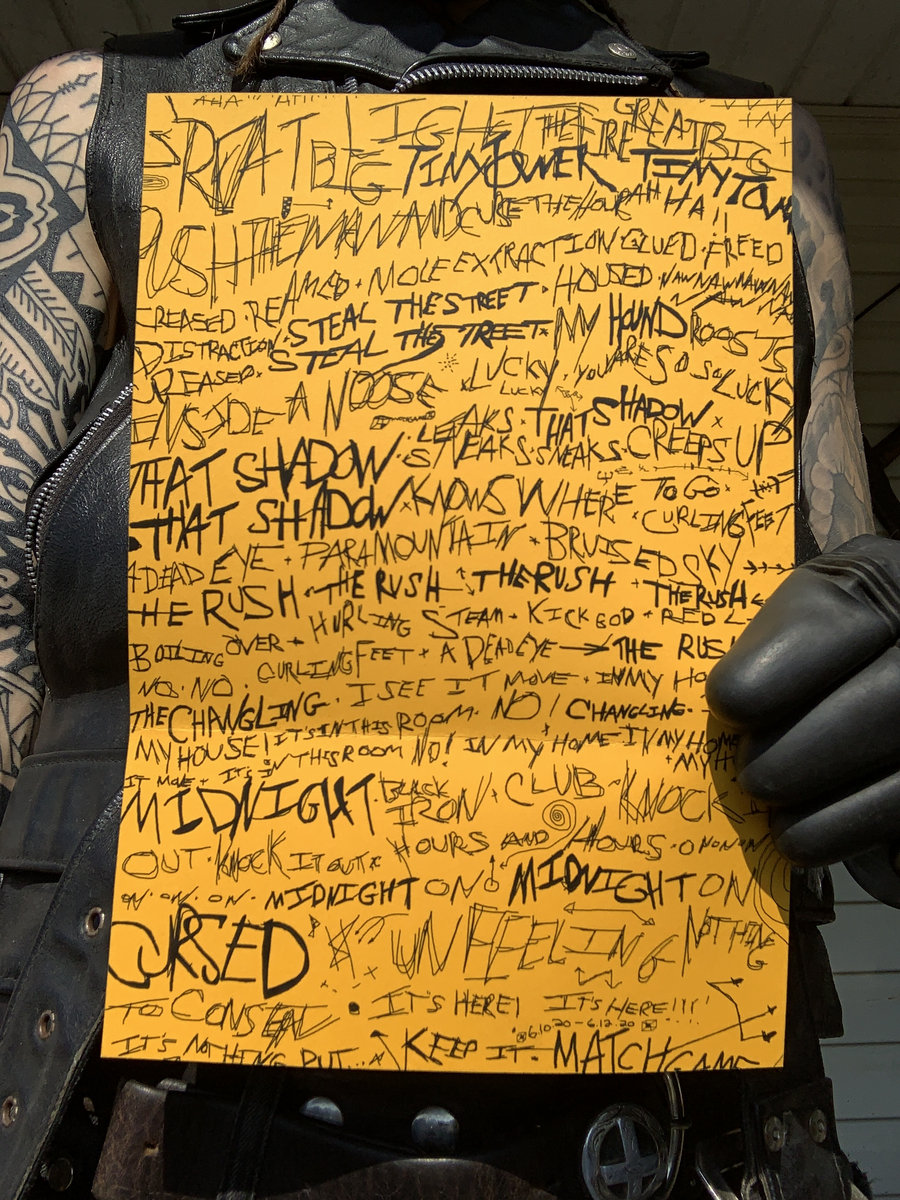 GREAT BIG LIGHT THE FIRE GREAT BIG
TINY TOWER TINY TOW
PUSH THE MAN AND CURSE THE HOUR AHH HA!!
CREASED · REAMED · MOLE EXTRACTION GLUED · FREED
DISTRACTION · STEAL THE STREET · HOUSED · NAWNAWNAWNAWN
CREASED · STEAL THE STREET · MY HOUND ROOSTS
INSIDE A NOOSE × LUCKY · YOU ARE SO SO LUCKY
LUCKY
THAT SHADOW · LEAKS · THAT SHADOW ×
SNEAKS · SNEAKS · CREEPS UP
THAT SHADOW × KNOWS WHERE TO GO ×
CURLING FEET
A DEAD EYE · PARAMOUNTAIN × BRUISED SKY
HE RUSH · THE RUSH · THE RUSH · THE RUSH
BOILING OVER + HURLING STEAM + KICK GOD + RED L
CURLING FEET + A DEAD EYE → THE RUS
NO · NO · I SEE IT MOVE · IN MY HO
THE CHANGLING · IT'S IN THIS ROOM · NO! CHANGLING ·
MY HOUSE! IN THIS ROOM NO! IN MY HOME · IN MY HOME
IT MOVE + IT'S + MY H
MIDNIGHT · BLACK IRON · CLUB · KNOCK I
OUT · KNOCK IT OUT × HOURS AND HOURS · ON ON ON
ON · ON · ON · MIDNIGHT ON MIDNIGHT ON
CURSED UNFEELING NOTHING
TO CONSEAL · IT'S HERE! IT'S HERE!!!!
6.10.20 – 6.12.20
IT'S NOTHING BUT... A KEEP IT · MATCH GAME